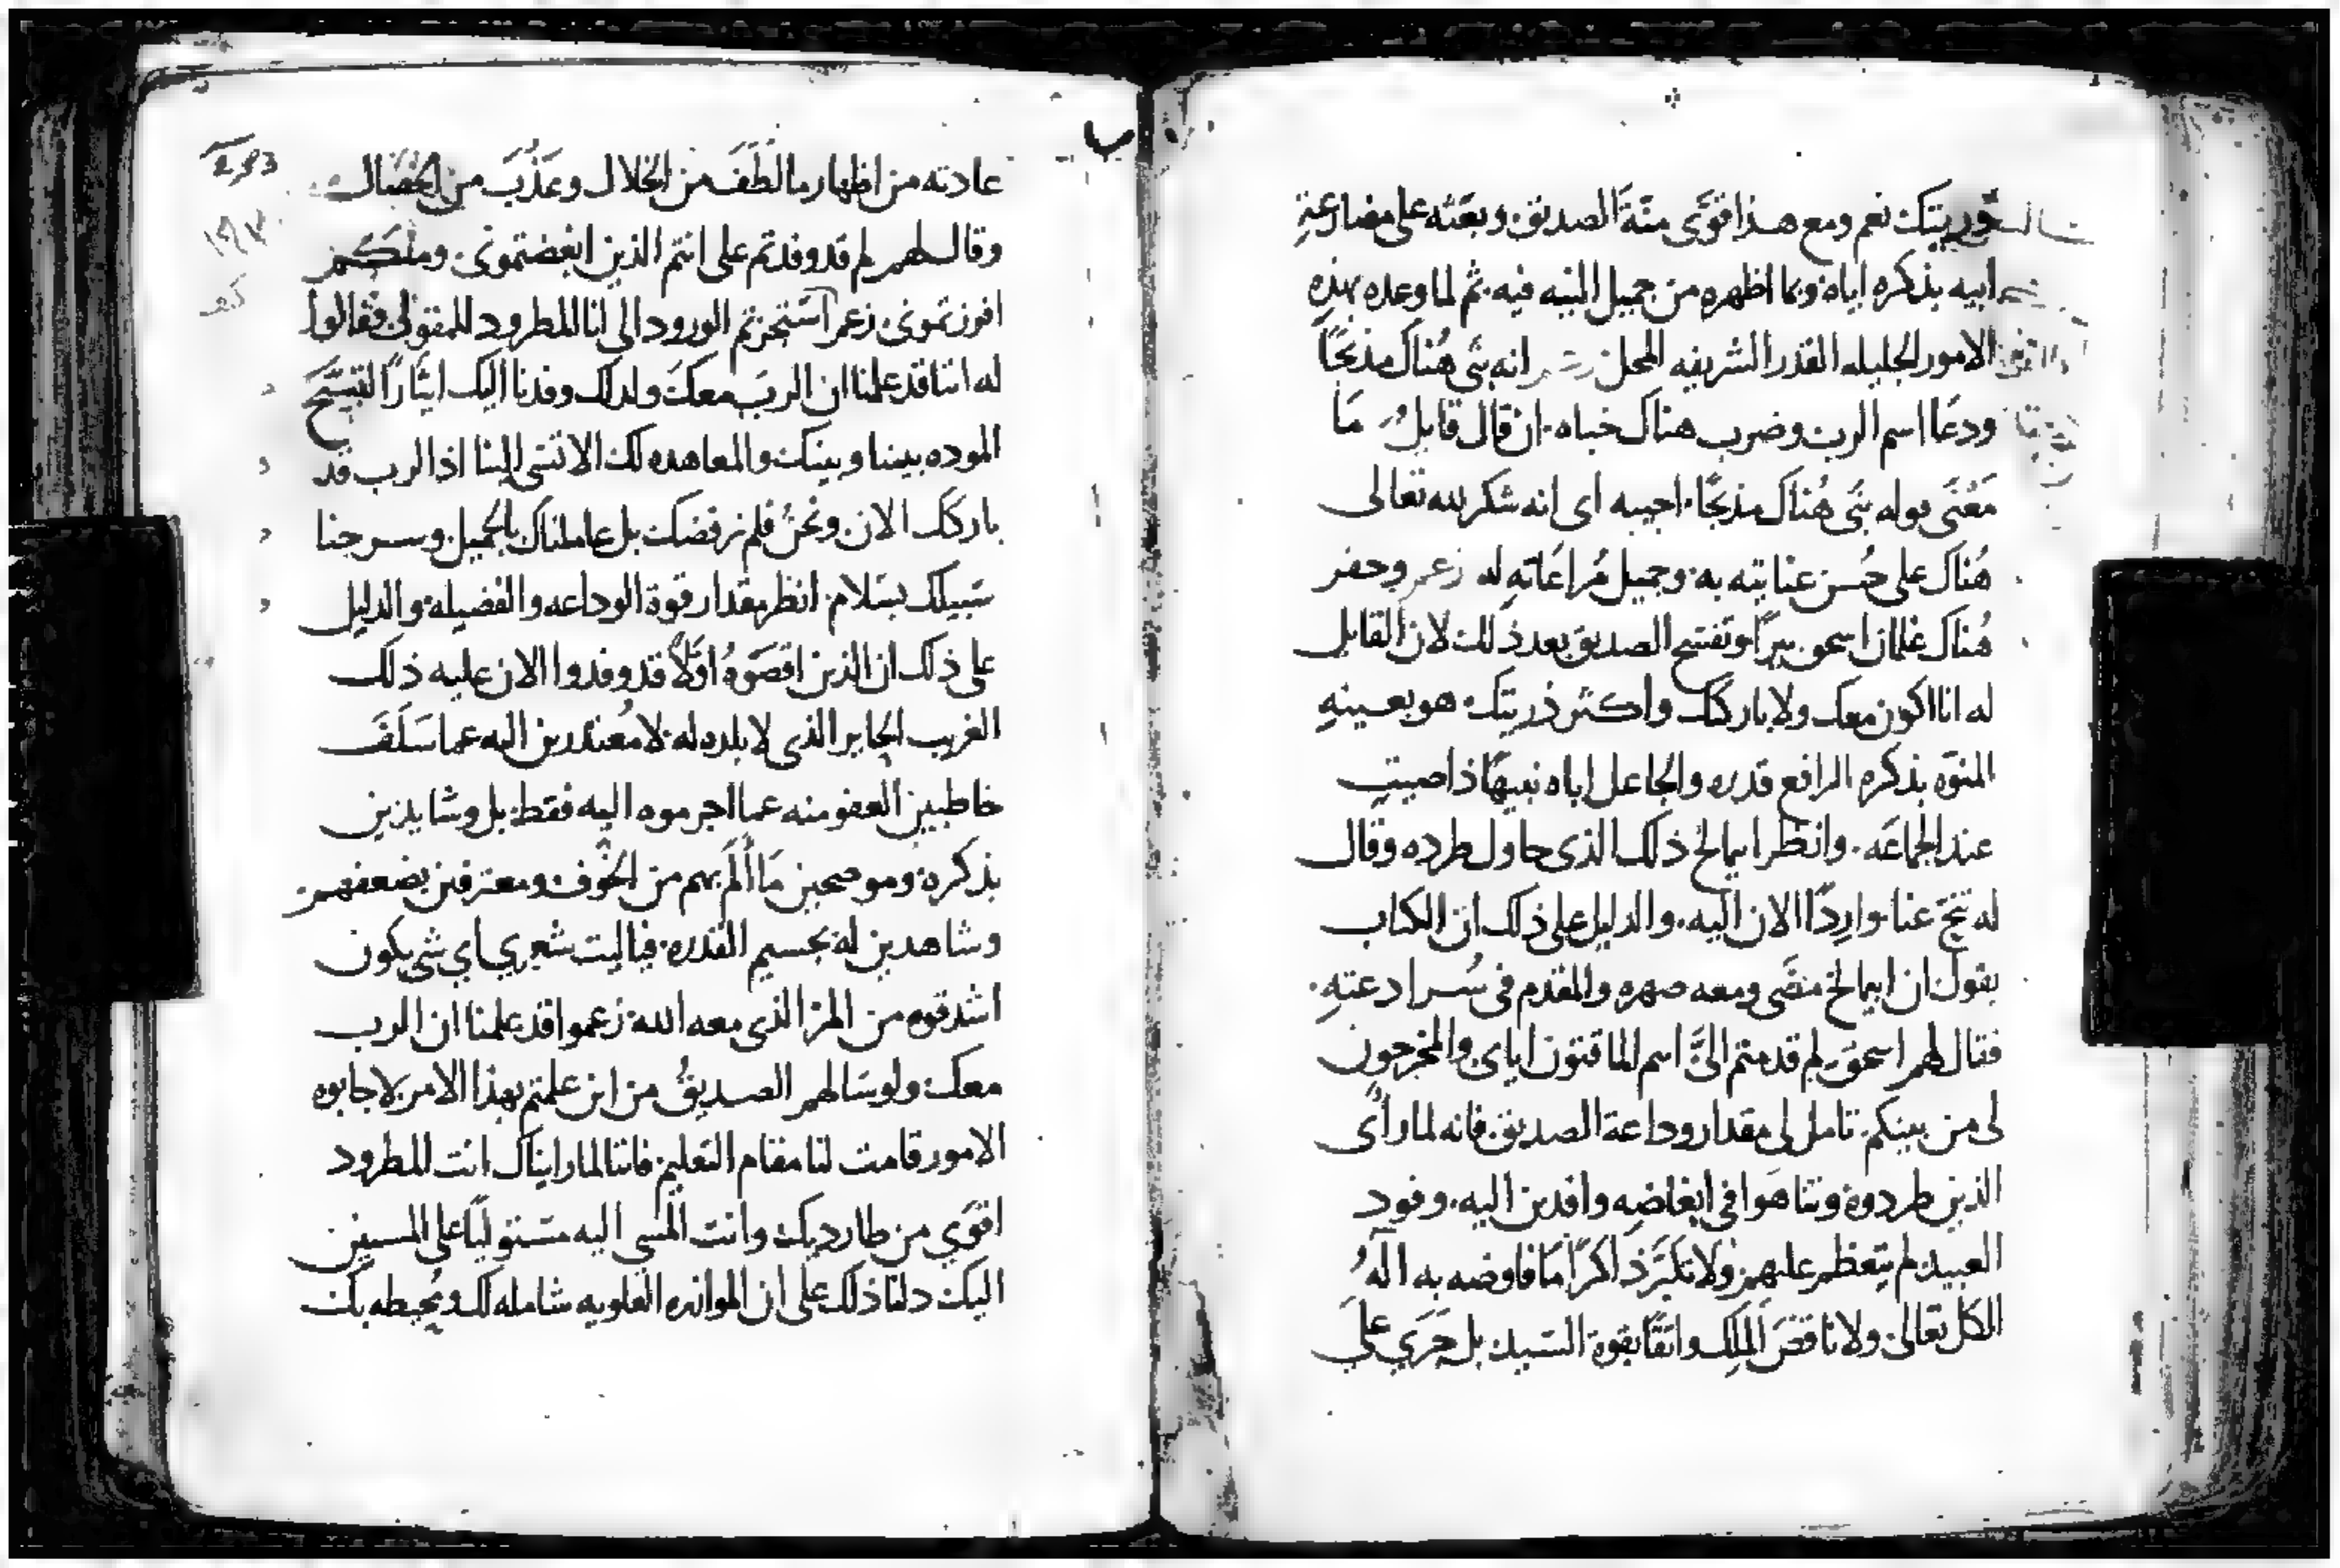 ذريتك نعم ومع هذا قوى منة الصديق وبعثه على مضارعة
ابيه بذكره اياه وبما اظهره من جميل النيه فيه ثم لما وعده بهذه
الامور الجليله القدر الشريفه المحل انه بنى هناك مذبحًا
ودعا اسم الرب وضرب هناك خباه ان قال قايل ما
معنى قوله بنى هناك مذبحًا اجيبه اى انه شكر لله تعالى
هناك على حسن عنايته به وجميل مراعاته له زعم وحفر
هناك غلمان اسحق بيرًا وتفتح الصديق بعد ذلك لان القايل
له انا اكون معك ولاباركنك واكثر ذريتك هو بعينه
المنوه بذكره الرافع قدره والجاعل اياه نبيهًا ذا صيت
عند الجماعه وانظر ابيمالخ ذلك الذى حاول طرده وقال
له تنح عنا واردًا الان اليه والدليل على ذلك ان الكتاب
يقول ان ابيمالخ مضى ومعه صهره والمقدم فى
فقال لهم اسحق لم قدمتم الىّ انتم الماقتون اياى والمخرجون
لى من بينكم تامل لى مقدار وداعة الصديق فانه لما راى
الذين طردوه وتناهوا فى ابغاضه وافدين اليه وفود
العبيد لم يتعظم عليهم ولا تكبر ذاكرًا ما فاوضه به اله
الكل تعالى ولا ناقض الملك واثقًا بقوة السيد بل جرى على
عادته من اظهار ما لطف من الخلال وعذب من الخصال
وقال لهم لم قد وفدتم على انتم الذين ابغضتمونى وملكم
افرزتمونى زعم استجزتم الورود الى انا المطرود الممقوت فقالوا
له اننا قد علمنا ان الرب معك ولذلك وفدنا اليك ايثارًا
الموده بيننا وبينك والمعاهده لك الا تسى الينا اذ الرب قد
باركك الان ونحن فلم نرفضك بل عاملناك بالجميل وسرحنا
سبيلك بسلام انظر مقدار قوة الوداعه والفضيله والدليل
على ذلك ان الذين اقصوه اولًا قد وفدوا الان عليه ذلك
الغريب الحاير الذى لا بلده له لا معتذرين اليه عما سلف
خاطبين العفو منه عما اجرموه اليه فقط بل وشايدين
بذكره وموضحين ما الم بهم من الخوف ومعترفين بضعفهم
وشاهدين له بجسيم القدره فيا ليت شعري اي شى يكون
اشد قوه من المر الذى معه الله زعموا قد علمنا ان الرب
معك ولو سالهم الصديق من اين علمتم بهذا الامر لاجابوه
الامور قامت لنا مقام التعليم فاننا لما رايناك انت المطرود
اقوي من طارديك وانت المسى اليه مستوليًا على المسيين
اليك دلنا ذلك على ان الموازره العلويه شامله لك ومحيطه بك